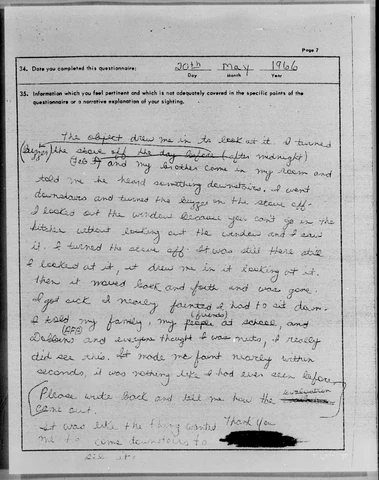 Page 7
34. Date you completed this questionnaire: 20th May 1966
Day Month Year
35. Information which you feel pertinent and which is not adequately covered in the specific points of the
questionnaire or a narrative explanation of your sighting.
The object drew me in to look at it. I turned
the stove off the day before (after midnight)
and my brother came in my room and
told me he heard something downstairs. I went
downstairs and turned the buzzer on the stove off.
I looked out the window because you can't go in the
kitchen without looking out the window and I saw
it. I turned the stove off. It was still there still
I looked at it, it drew me in it looking at it.
then it moved back and forth and was gone.
I got sick I nearly fainted I had to sit down.
I told my family, my people at school, and
(friends)
Dobbins and everyone thought I was nuts, I really
(AFB)
did see this. It made me faint nearly within
seconds, it was nothing like I had ever seen before.
Please write back and tell me how the evaluation
came out.
It was like the thing wanted Thank you
me to come downstairs to
see it.